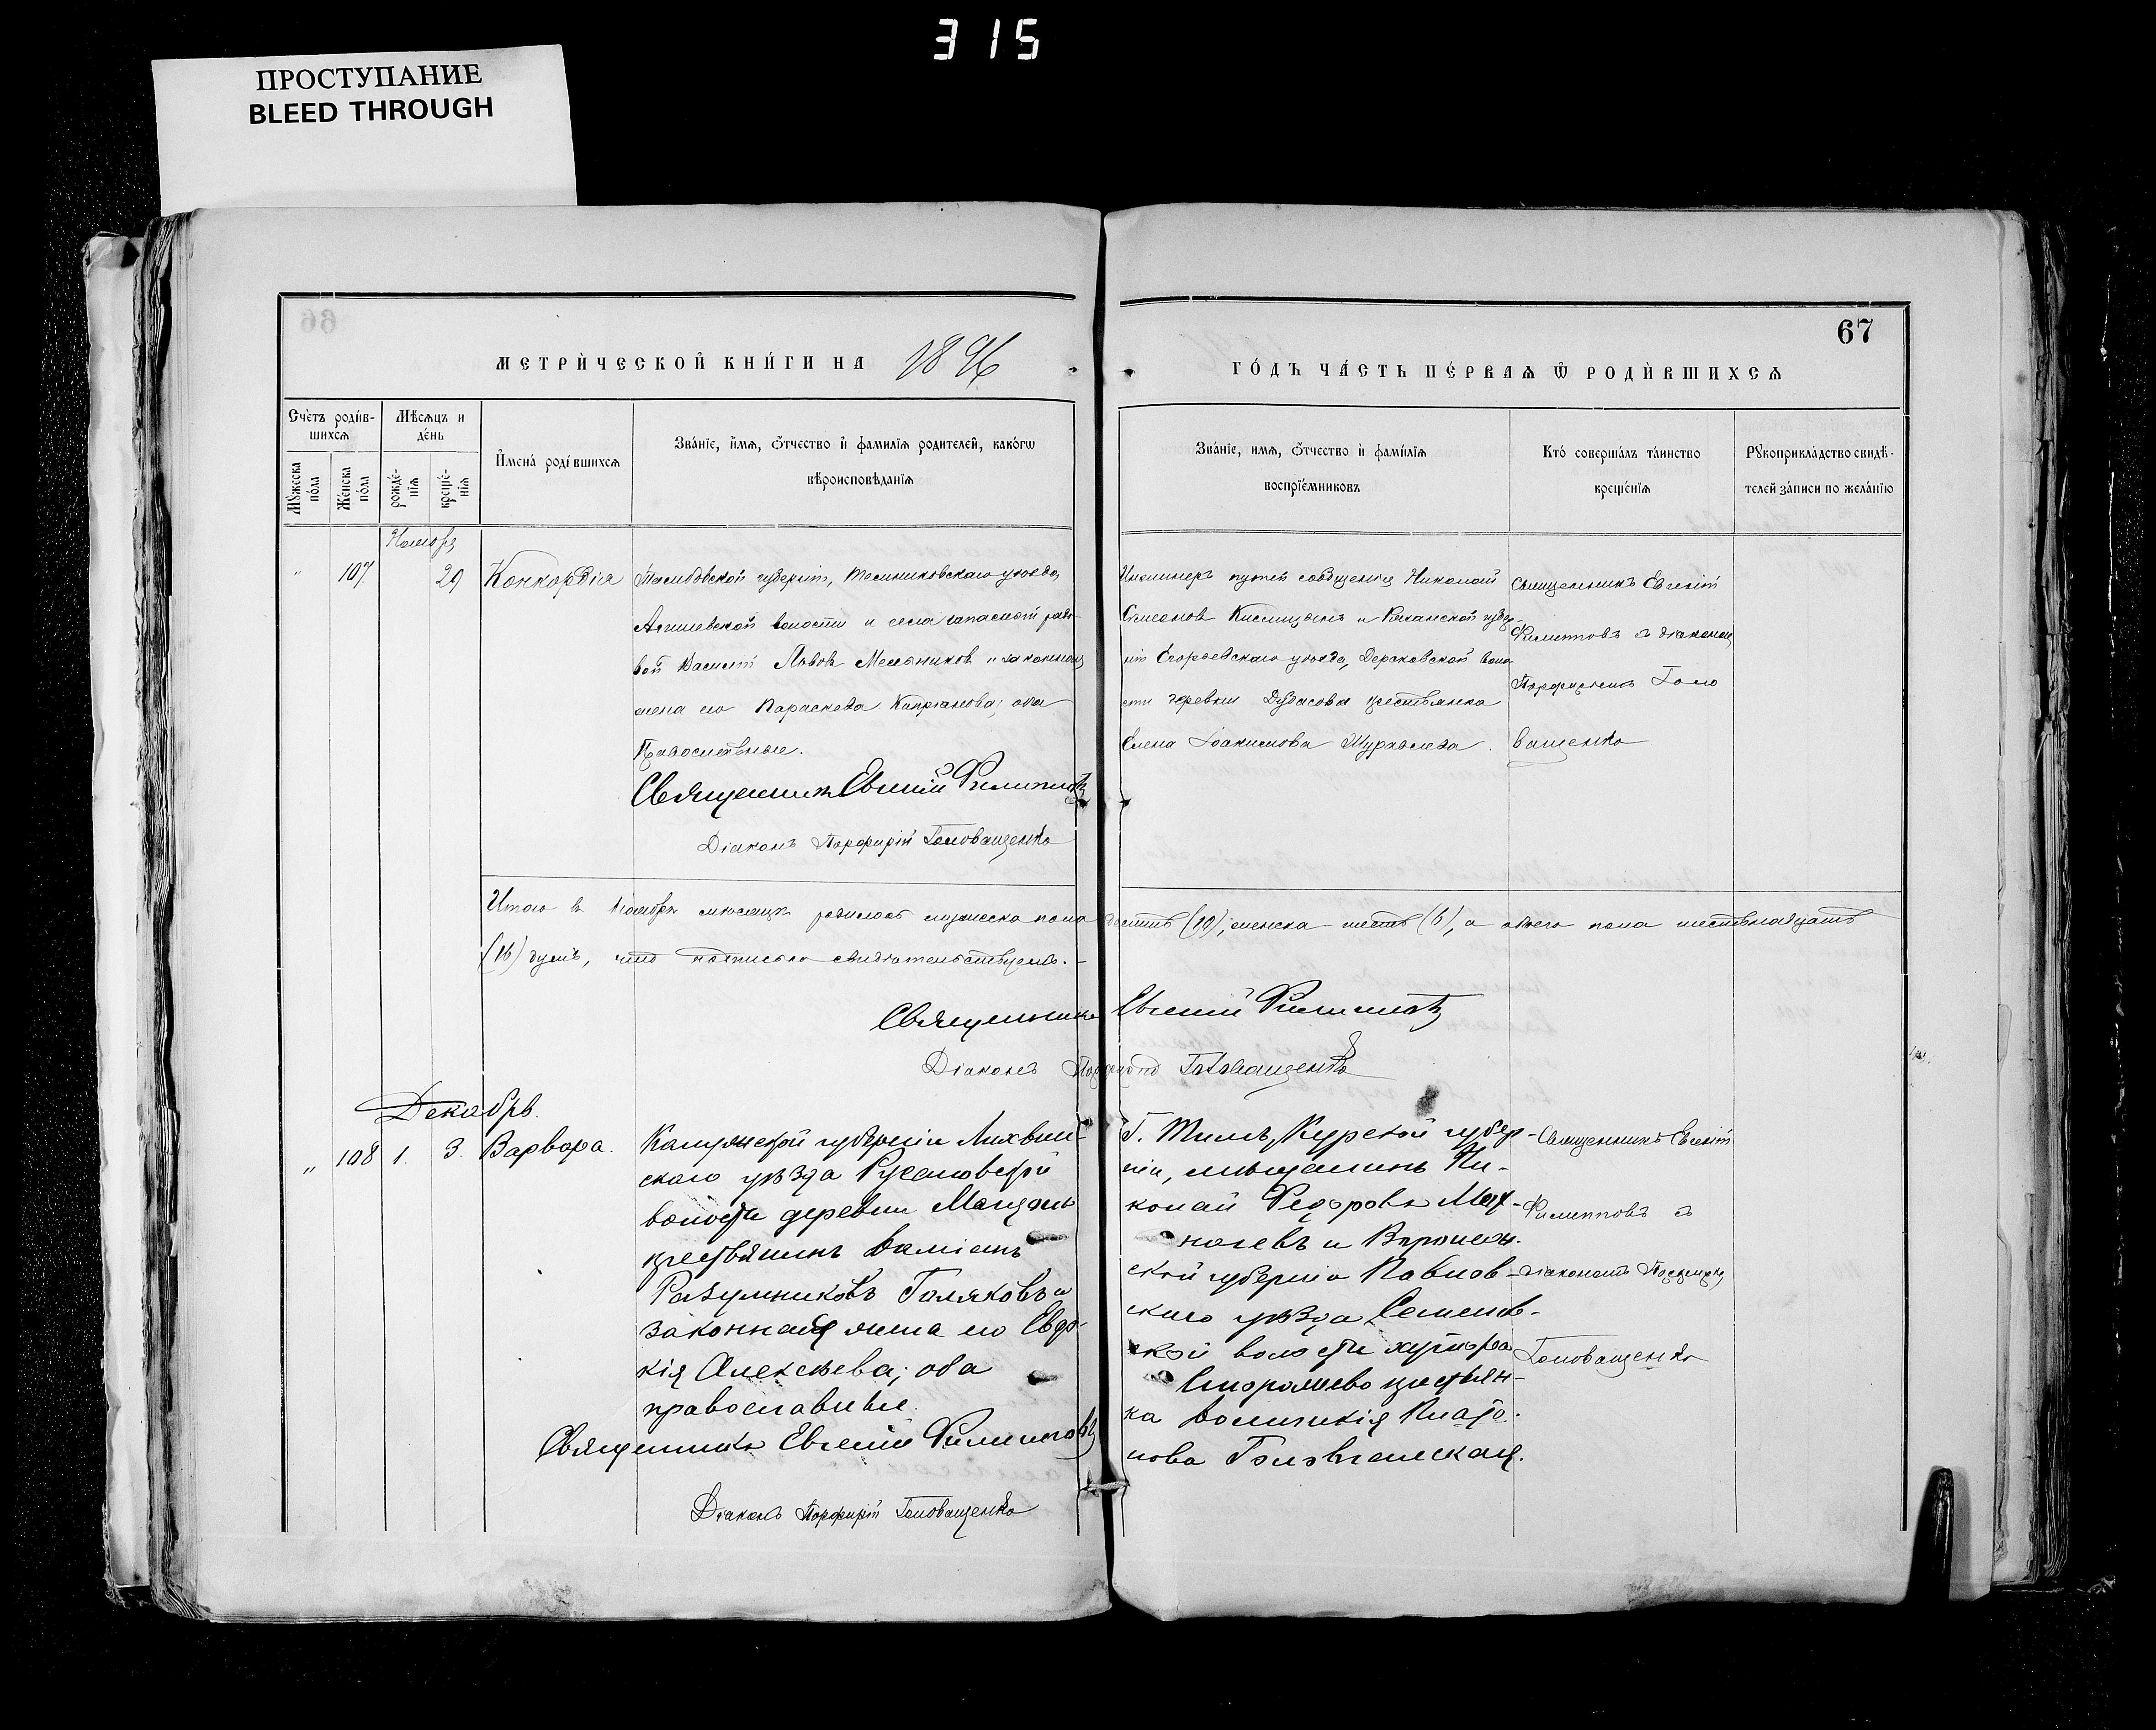 315
ПРОСТУПАНИЕ
BLEED THROUGH
67
МЕТРИ́ЧЕСКОЙ КНИ́ГИ НА 1896
ГО́ДЪ ЧА́СТЬ ПЕ́РВАѦ Ѿ РОДИ́ВШИХСѦ
Счетъ роди́в-
шихсѧ
Мѣсѧцъ и
де́нь
Мꙋ́жеска
по́ла
Же́нска
по́ла
рожде́-
нїѧ
креще́-
нїѧ
И҆мена́ роди́вшихсѧ
Зва́нїе, и҆́мѧ, ѻ҆́тчество и҆ фамилїѧ родителей, како́гѡ
вѣроисповѣ́данїѧ
Зва́нїе, имѧ, ѻ҆́тчество и҆ фами́лїѧ
воспрїе́мниковъ
Кто́ соверша́лъ та́инство
креще́нїѧ
Рꙋкоприкла́дство свидѣ́-
телей за́писи по жела́нїю
Ноября
" 107 29 Конкордія
Тамбовской губерніи, Темниковскаго уѣзда,
волости и села запасной рядо-
вой Василій Львовъ Мельниковъ и законная
жена его Параскева Кипріанова; оба
Православные.
Священникъ Евгеній Филипповъ
Діаконъ Порфирій Головащенко
Инженеръ путей сообщенія Николай
Симеоновъ Кислицынъ и Рязанской губер-
ніи Егорьевскаго уѣзда, воло-
сти деревни Дубасова крестьянка
Елена Іоакимова Журавлева.
Священникъ Евгеній
Филипповъ съ діакономъ
Порфиріемъ Голо
ващенко
Итого въ Ноябрѣ мѣсяцѣ родилось мужеска пола десять (10), женска – шесть (6), а обоего пола шестнадцать
(16) душъ, что подписью свидѣтельствуемъ. –
Священникъ Евгеній Филипповъ
Діаконъ Порфирій Головащенко
Декабрь.
" 108 1. 3. Варвара.
Калужской губерніи Лихвин-
скаго уѣзда
волости деревни
крестьянинъ
Разумниковъ Голяковъ и
законная жена его Евдо-
кія Алексѣева; оба
православные.
Священникъ Евгеній Филипповъ
Діаконъ Порфирій Головащенко
Г. Тимъ, Курской губер-
ніи, мѣщанинъ Ни-
колай Ѳедоровъ
и Воронеж-
ской губерніи Павлов-
скаго уѣзда
ской волости хутора
крестьян-
ка
нова
Священникъ Евгеній
Филипповъ съ
діакономъ
Головащенко